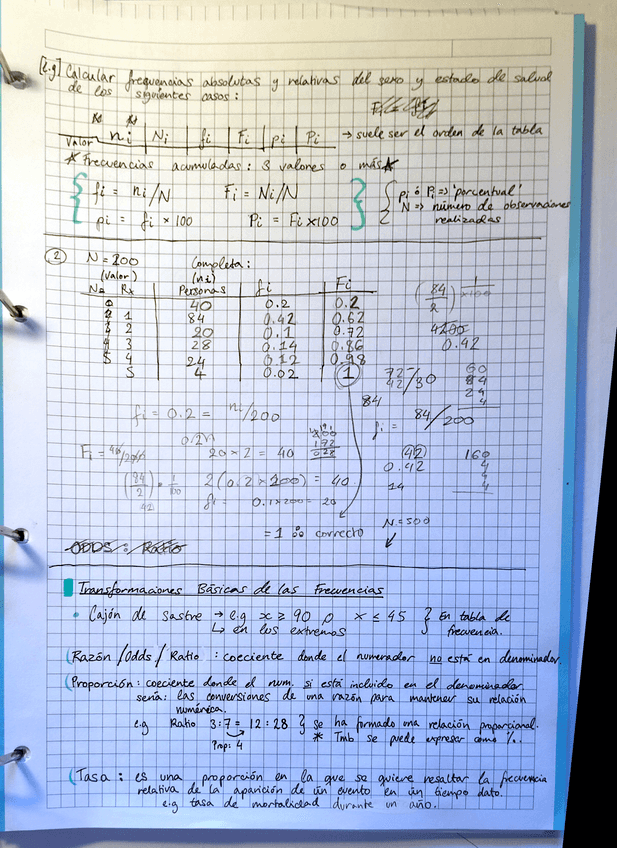 [e.g] Calcular frequencias absolutas y relativas del sexo y estado de salud
de los siguientes casos:
Valor | ni | Ni | fi | Fi | pi | Pi → suele ser el orden de la tabla
* Frecuencias acumuladas: 3 valores o más *
fi = ni/N Fi = Ni/N
pi = fi × 100 Pi = Fi×100
pi ó Pi => 'porcentual'
N => número de observaciones
realizadas
2 N = 200 Completa:
(valor) (ni)
Personas fi Fi
40 0.2 0.2
1 84 0.42 0.62
2 20 0.1 0.72
3 28 0.14 0.86
4 24 0.12 0.98
5 4 0.02 1
(84/2) 1/×100
4200
0.42
72-
42/30
60
84
24
4
84
fi = 84/200
fi = 0.2 = ni/200
0.2n
Fi = 40/200
20 × 2 = 40
(84/2) · 1/100
42
2(0.2 × 200) = 40
fi = 0.1×200 = 20
(42)
0.42
14
160
4
4
4
= 1 ∴ correcto
N = 500
ODDS : Ratio
Transformaciones Básicas de las Frecuencias
• Cajón de sastre → e.g x ≥ 90 o x ≤ 45 } En tabla de
↳ en los extremos frecuencia.
(Razón/Odds/Ratio : coeciente donde el numerador no está en denominador.
(Proporción: coeciente donde el num. si está incluido en el denominador.
sería: las conversiones de una razón para mantener su relación
numérica.
e.g Ratio 3:7 = 12:28 } se ha formado una relación proporcional.
Prop: 4 * Tmb se puede expresar como %.
(Tasa : es una proporción en la que se quiere resaltar la frecuencia
relativa de la aparición de un evento en un tiempo dato.
e.g tasa de mortalidad durante un año.